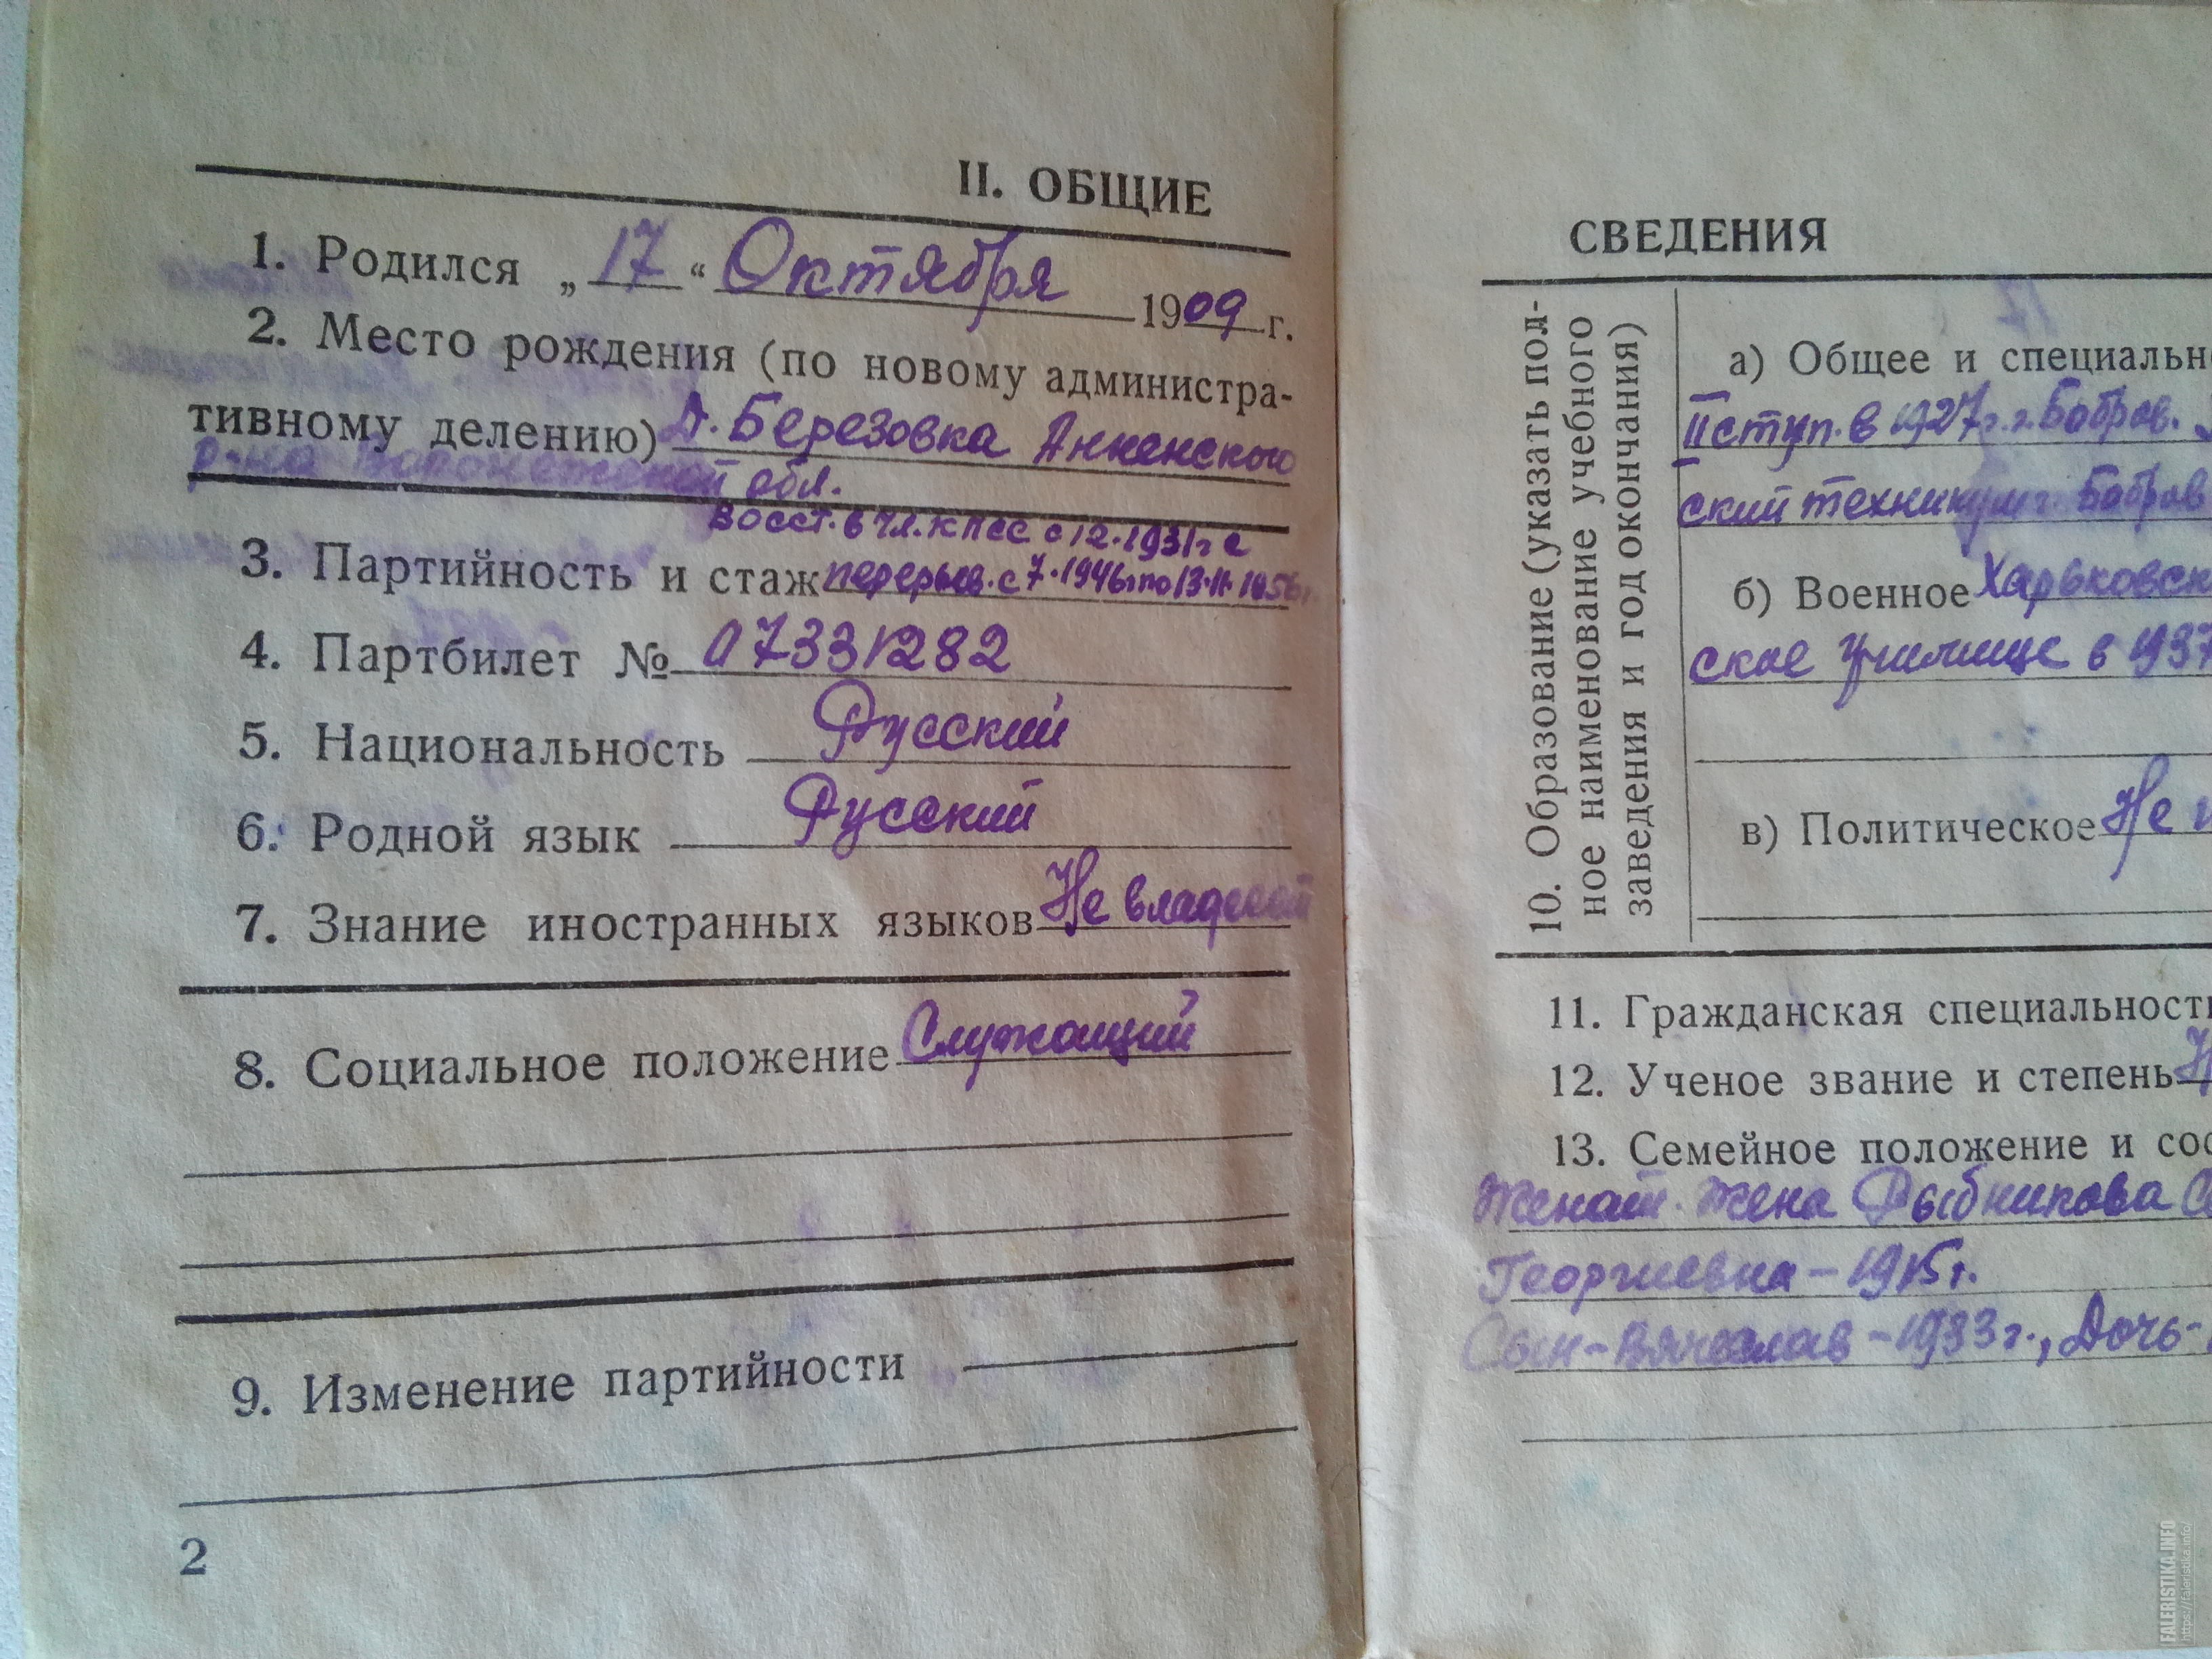 II. ОБЩИЕ
1. Родился „17“ Октября 1909 г.
2. Место рождения (по новому администра-
тивному делению) д. Березовка Анненского
р-на Воронежской обл.
Восст. в чл. КПСС с 12.1931г с
3. Партийность и стаж перерыв. с 7.1946г по 13.11.1956г
4. Партбилет № 07331282
5. Национальность Русский
6. Родной язык Русский
7. Знание иностранных языков Не владеет
8. Социальное положение Служащий
9. Изменение партийности
2
СВЕДЕНИЯ
10. Образование (указать пол-
ное наименование учебного
заведения и год окончания)
а) Общее и специальн
II ступ. в 1927г. г. Бобров.
ский техникум г. Бобров
б) Военное Харьковск
ское училище в 1937
в) Политическое Не
11. Гражданская специальност
12. Ученое звание и степень
13. Семейное положение и сос
Женат. Жена Рыбникова
Георгиевна – 1915г.
Сын – Вячеслав – 1933г., Дочь –
FALERISTIKA.INFO
https://faleristika.info/